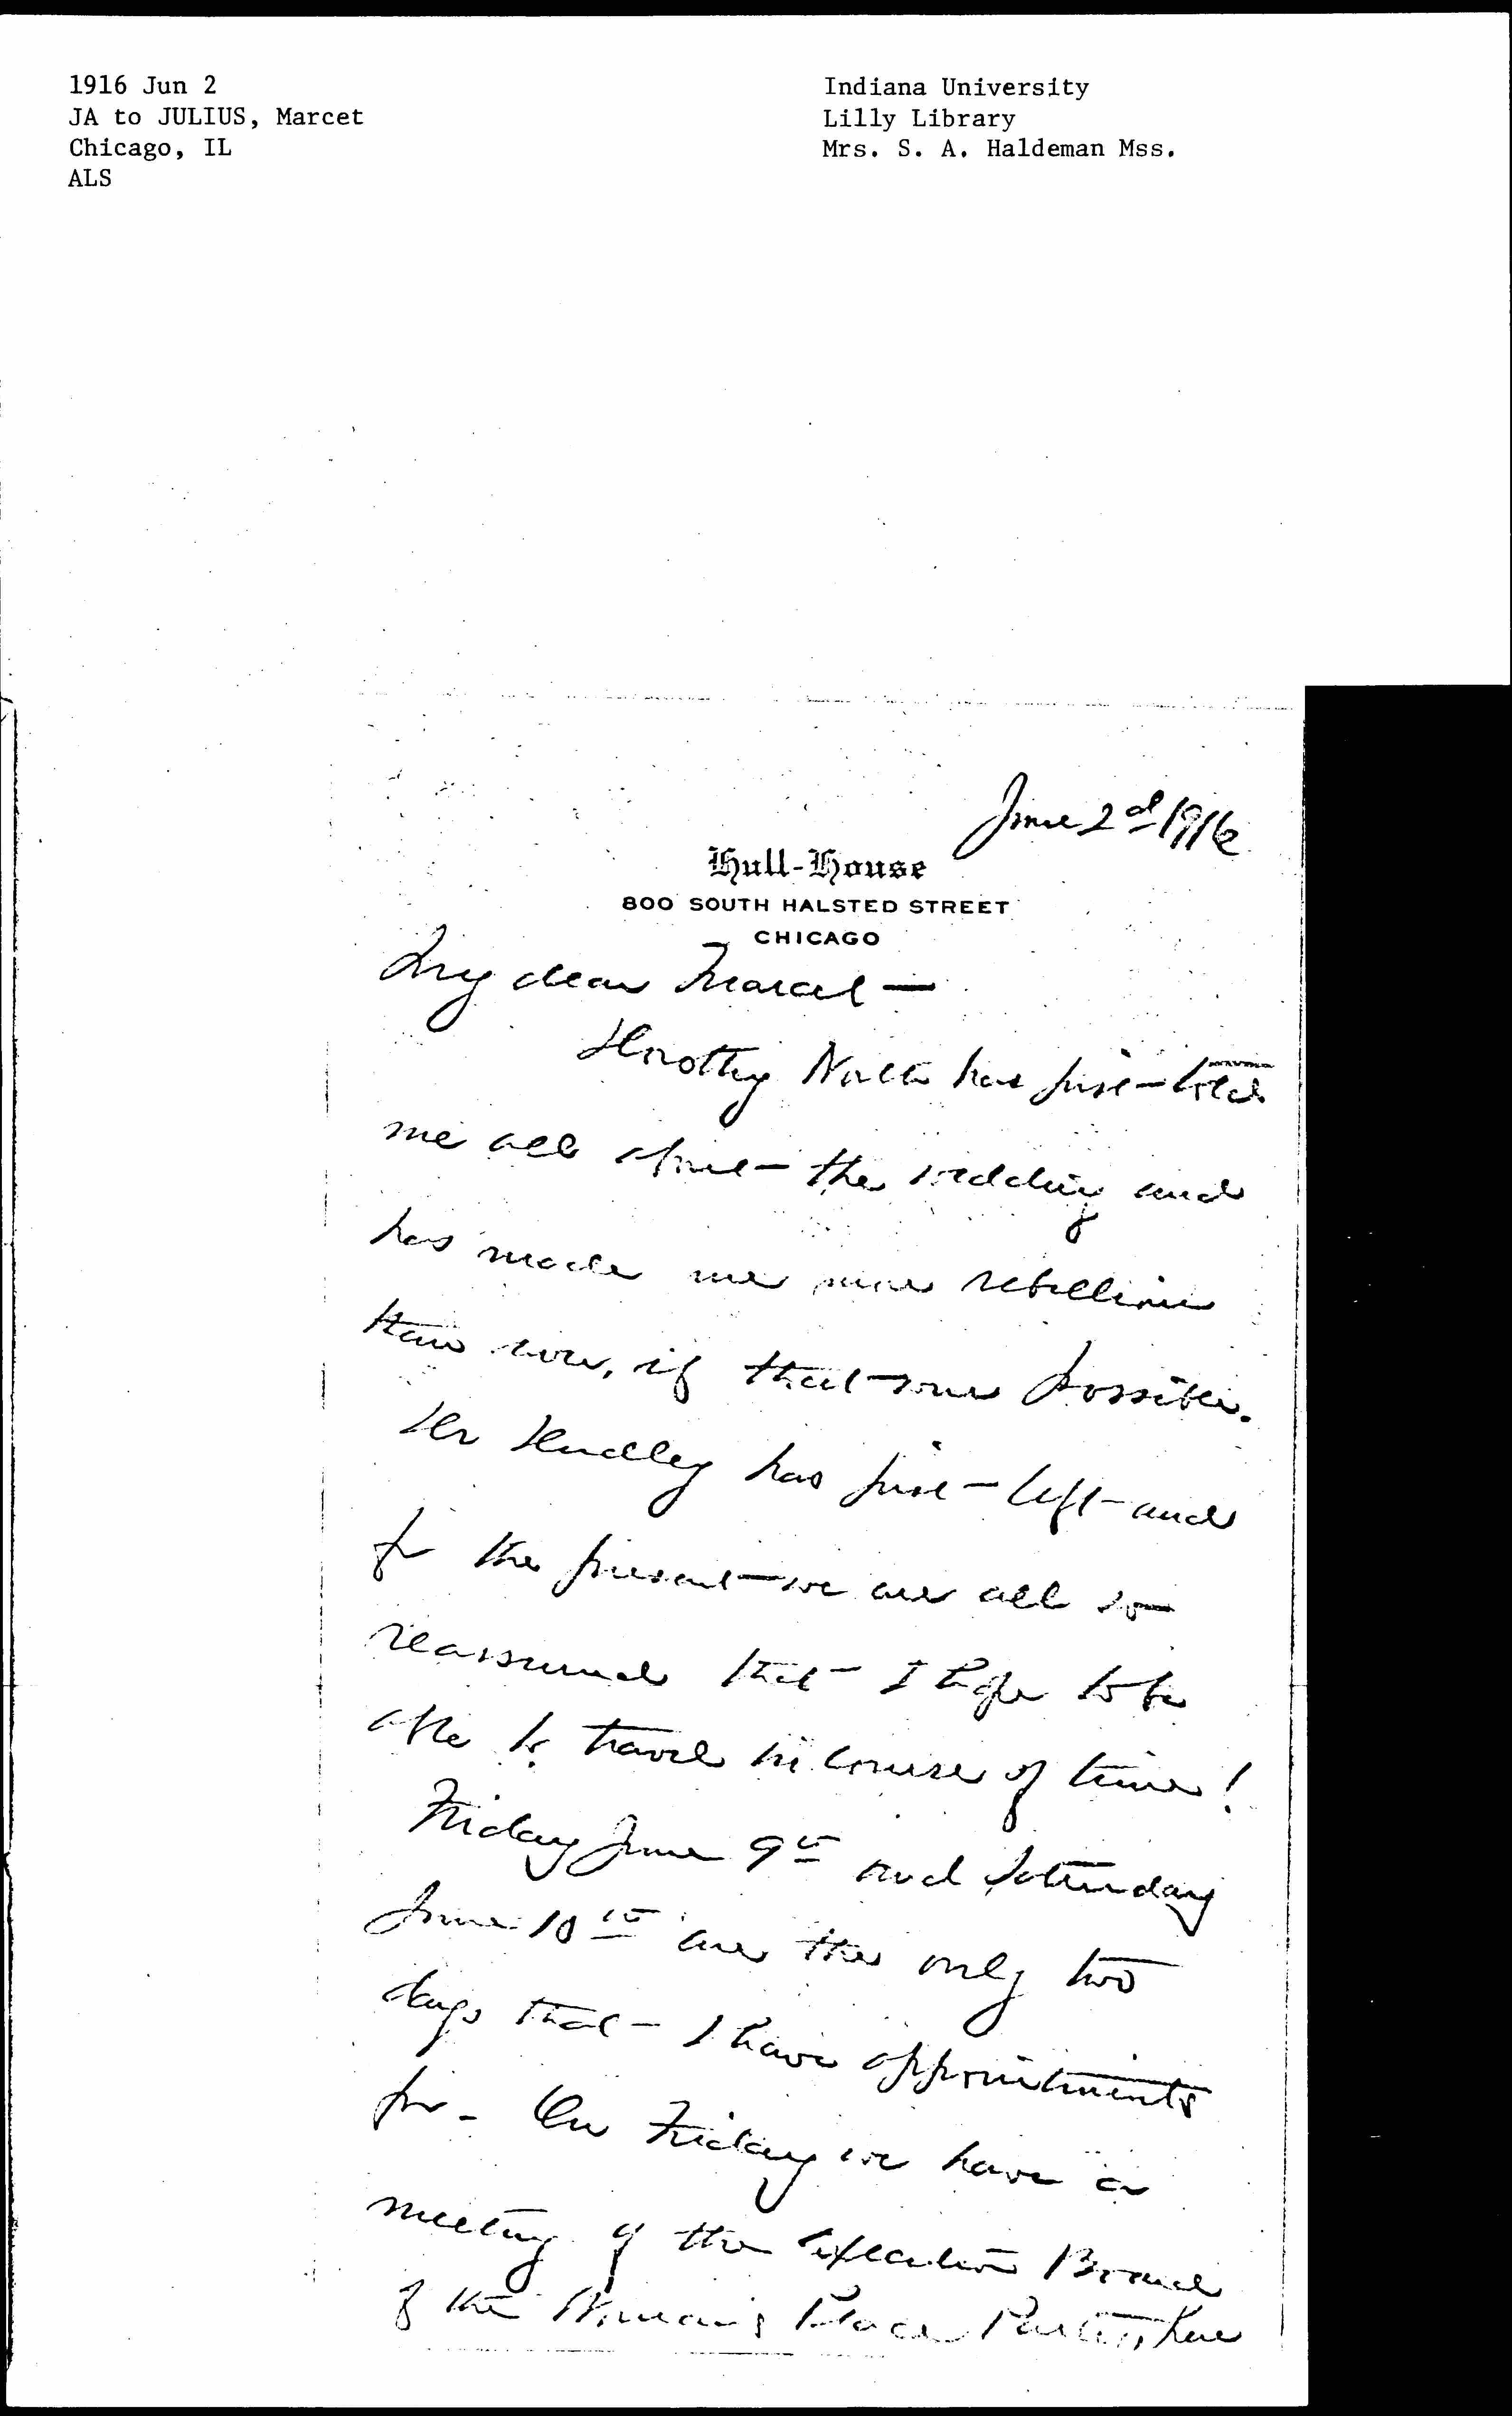 1916 Jun 2
JA to JULIUS, Marcet
Chicago, IL
ALS
Indiana University
Lilly Library
Mrs. S. A. Haldeman Mss.
June 2d 1916
Hull-House
800 SOUTH HALSTED STREET
CHICAGO
My dear Marcet —
Dorothy North has just told
me all about the wedding and
has made me more rebellious
than ever, if that were possible.
Dr Dudley has just left and
for the present we are all so
reassured that I hope to be
able to travel in course of time!
Friday June 9th and Saturday
June 10th are the only two
days that I have appointments
for - On Friday we have a
meeting of the Executive Board
of the Woman's Peace Party, here